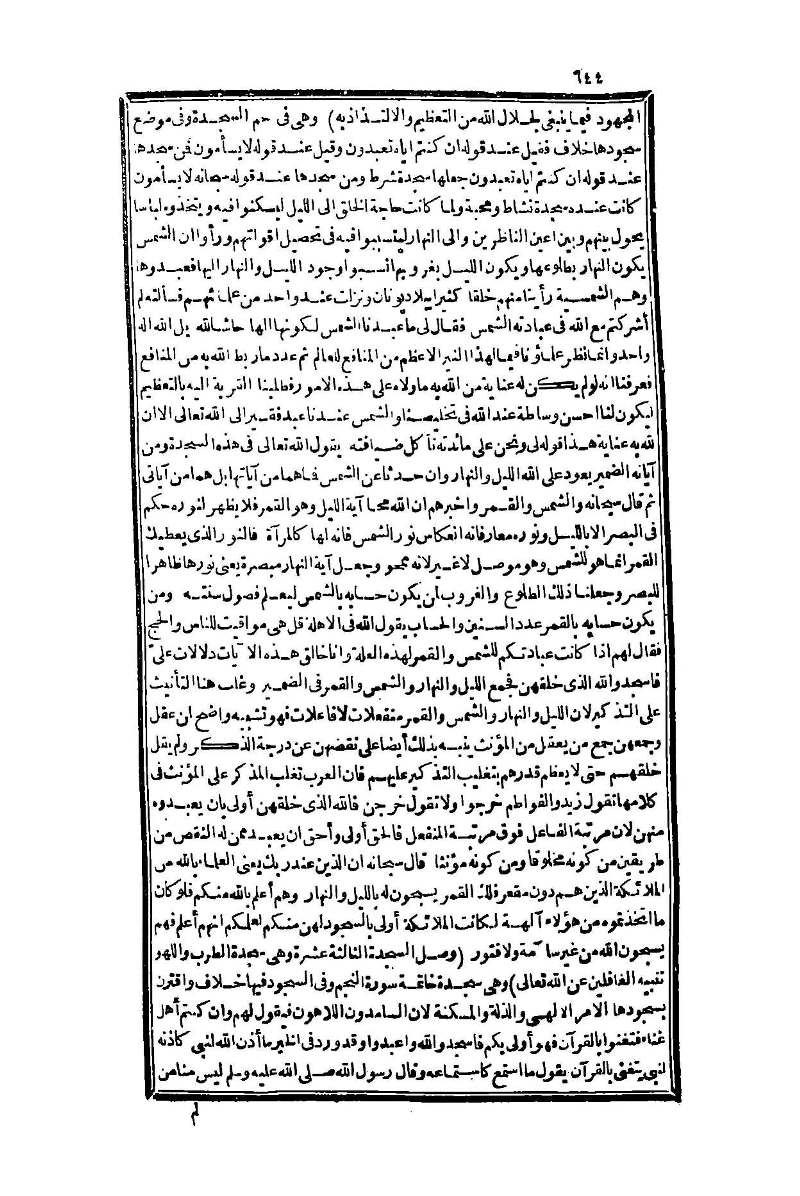 ٦٤٤
المجهود فيما ينبغي لجلال الله من التعظيم والالتذاذ به) وهي في حم السجدة وفي موضع
سجودها خلاف فقيل عند قوله ان كنتم اياه تعبدون وقيل عند قوله لا يسأمون فمن سجدها
عند قوله ان كنتم اياه تعبدون جعلها سجدة شرط ومن سجدها عند قوله سبحانه لا يسأمون
كانت عنده سجدة نشاط ومحبة ولما كانت حاجة الخلق الى الليل ليسكنوا فيه ويتخذوه لباسا
يحول بينهم وبين اعين الناظرين والى النهار ليتسببوا فيه في تحصيل اقواتهم ورأوا ان الشمس
يكون النهار بطلوعها ويكون الليل بغروبها نسبوا وجود الليل والنهار اليها فعبدوها
وهم الشمسية رأينا منهم خلقا كثيرا ببلاد يونان ونزلت عند واحد من علمائهم فسألته لم
أشركتم مع الله في عبادته الشمس فقال لي ما عبدنا الشمس لكونها الها حاشا لله بل الله اله
واحد وانما نظر علماؤنا فيما لهذا النير الاعظم من المنافع للعالم ثم عدد ما ربط الله به من المنافع
فعرفنا انه لو لم يكن له عناية من الله به ما ولاه على هذه الامور فطلبنا القربة اليه بالتعظيم
ليكون لنا احسن وساطة عند الله في تخليصنا والشمس عندنا عبد فقير الى الله تعالى الا ان
لله به عناية هذا قوله لي ونحن على مائدته نأكل ضيافته يقول الله تعالى في هذه السجدة ومن
آياته الضمير يعود على الله الليل والنهار وان حدثا عن الشمس فما هما من آياتها بل هما من آياتي
ثم قال سبحانه والشمس والقمر واخبرهم ان الله محا آية الليل وهو القمر فلا يظهر لنوره حكم
في البصر الا بالليل ونوره معار فانه انعكاس نور الشمس فانه لها كالمرآة فالنور الذي يعطيك
القمر انما هو للشمس وهو موصل لا غير لانه ممحو وجعل آية النهار مبصرة يعني نورها ظاهرا
للبصر وجعلنا ذلك الطلوع والغروب لمن يكون حسابه بالشمس ليعلم فصول سنته ومن
يكون حسابه بالقمر عدد السنين والحساب يقول الله في الاهلة قل هي مواقيت للناس والحج
فقال لهم اذا كانت عبادتكم للشمس والقمر لهذه العلة وانا خالق هذه الآيات دلالات علي
فاسجدوا لله الذي خلقهن فجمع الليل والنهار والشمس والقمر في الضمير وغلب هنا التأنيث
على التذكير لان الليل والنهار والشمس والقمر منفعلات لا فاعلات فهو تشبيه واضح ان عقل
وجمعهن جمع من يعقل من المؤنث ينبه بذلك أيضا على نقصهن عن درجة الذكر ولم يقل
خلقهم حتى لا يعظم قدرهم بتغليب التذكير عليهم فان العرب تغلب المذكر على المؤنث في
كلامها تقول زيد والفواطم خرجوا ولا تقول خرجن فالله الذي خلقهن أولى بان يعبدوه
منهن لان مرتبة الفاعل فوق مرتبة المنفعل فالحق أولى وأحق ان يعبد ممن له النقص من
طريقين من كونه مخلوقا ومن كونه مؤنثا قال سبحانه ان الذين عند ربك يعني العلماء بالله من
الملائكة الذين هم دون مقعر فلك القمر يسبحون له بالليل والنهار وهم أعلم بالله منكم فلو كان
ما اتخذتموه من هؤلاء آلهة لكانت الملائكة أولى بالسجود لهن منكم لعلمكم انهم أعلم فهم
يسبحون الله من غير سآمة ولا فتور (وصل السجدة الثالثة عشرة وهي سجدة الطرب واللهو
تنبيه الغافلين عن الله تعالى) وهي سجدة خاتمة سورة النجم وفي السجود فيها خلاف واقترن
بسجودها الامر الالهي والذلة والمسكنة لان السامدون اللاهون فيقول لهم وان كنتم أهل
غناء فتغنوا بالقرآن فهو أولى بكم فاسجدوا لله واعبدوا وقد ورد في الخبر ما أذن الله لنبي كاذنه
لنبي يتغنى بالقرآن يقول ما استمع كاستماعه وقال رسول الله صلى الله عليه وسلم ليس منا من
لم